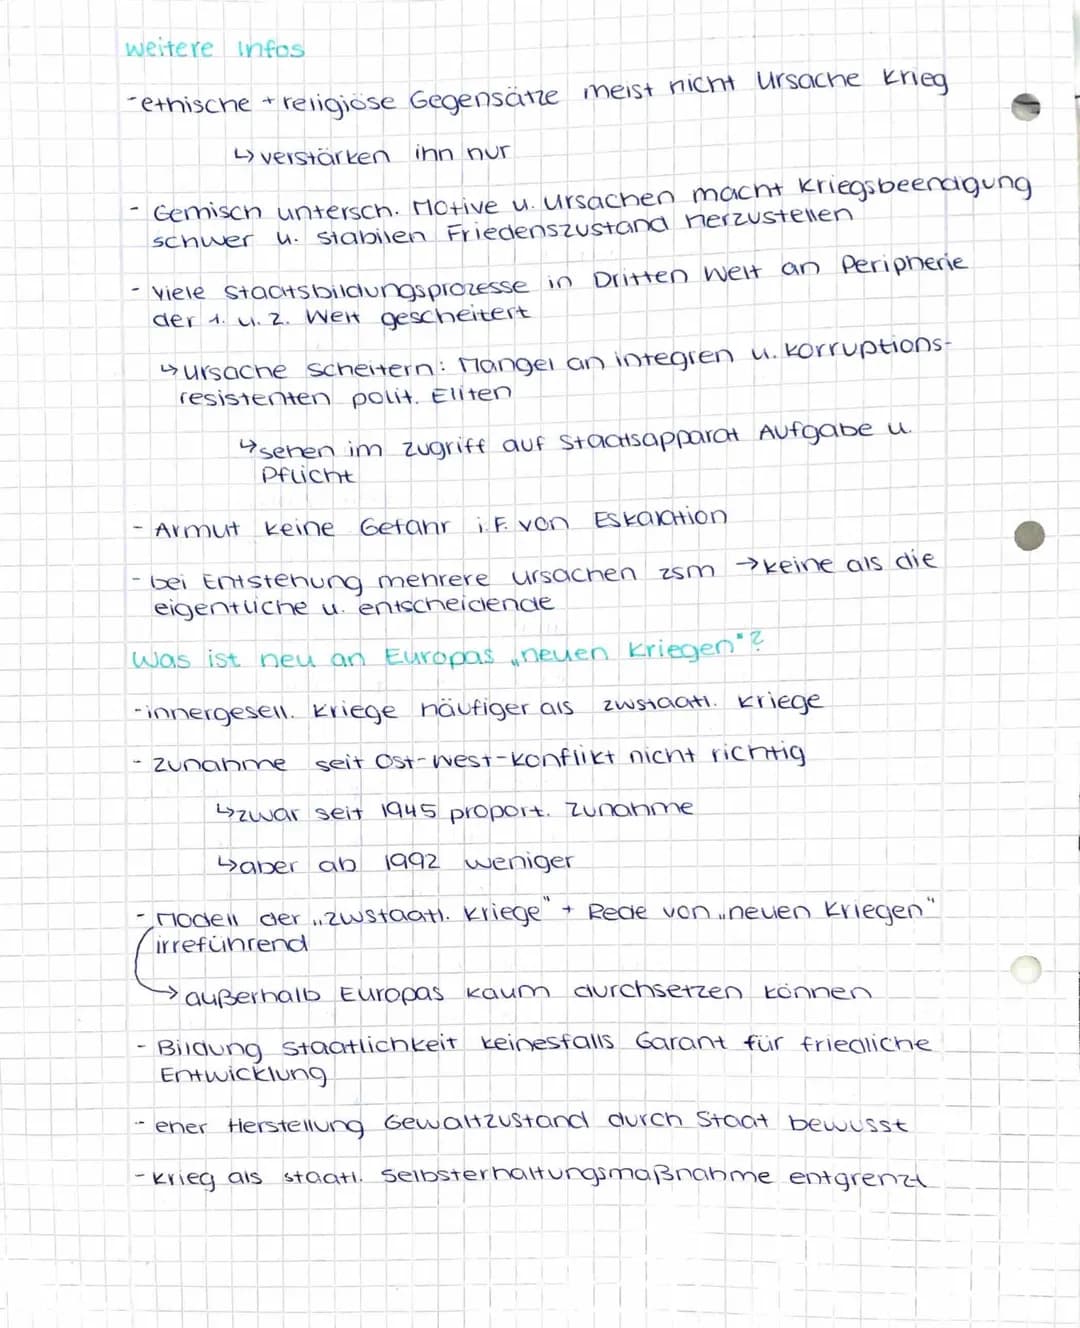 weitere Infos
- ethische + religiöse Gegensätze meist nicht Ursache Krieg
↳ verstärken ihn nur
- Gemisch untersch. Motive u. Ursachen macht Kriegsbeendigung
schwer u. stabilen Friedenszustand herzustellen
- viele Staatsbildungsprozesse in Dritten Welt an Peripherie
der 1. u. 2. Welt gescheitert
↳ Ursache Scheitern: Mangel an integren u. korruptions-
resistenten polit. Eliten
↳ sehen im Zugriff auf Staatsapparat Aufgabe u.
Pflicht
- Armut keine Gefahr i.F. von Eskalation
- bei Entstehung mehrere Ursachen zsm → keine als die
eigentliche u. entscheidende
Was ist neu an Europas „neuen Kriegen"?
- innergesell. Kriege häufiger als zwstaatl. Kriege
- Zunahme seit Ost-West-Konflikt nicht richtig
↳ zwar seit 1945 proport. Zunahme
↳ aber ab 1992 weniger
- Modell der „zwstaatl. Kriege" + Rede von „neuen Kriegen"
irreführend
→ außerhalb Europas kaum durchsetzen können
- Bildung Staatlichkeit keinesfalls Garant für friedliche
Entwicklung
- eher Herstellung Gewaltzustand durch Staat bewusst
- Krieg als staatl. Selbsterhaltungsmaßnahme entgrenzt